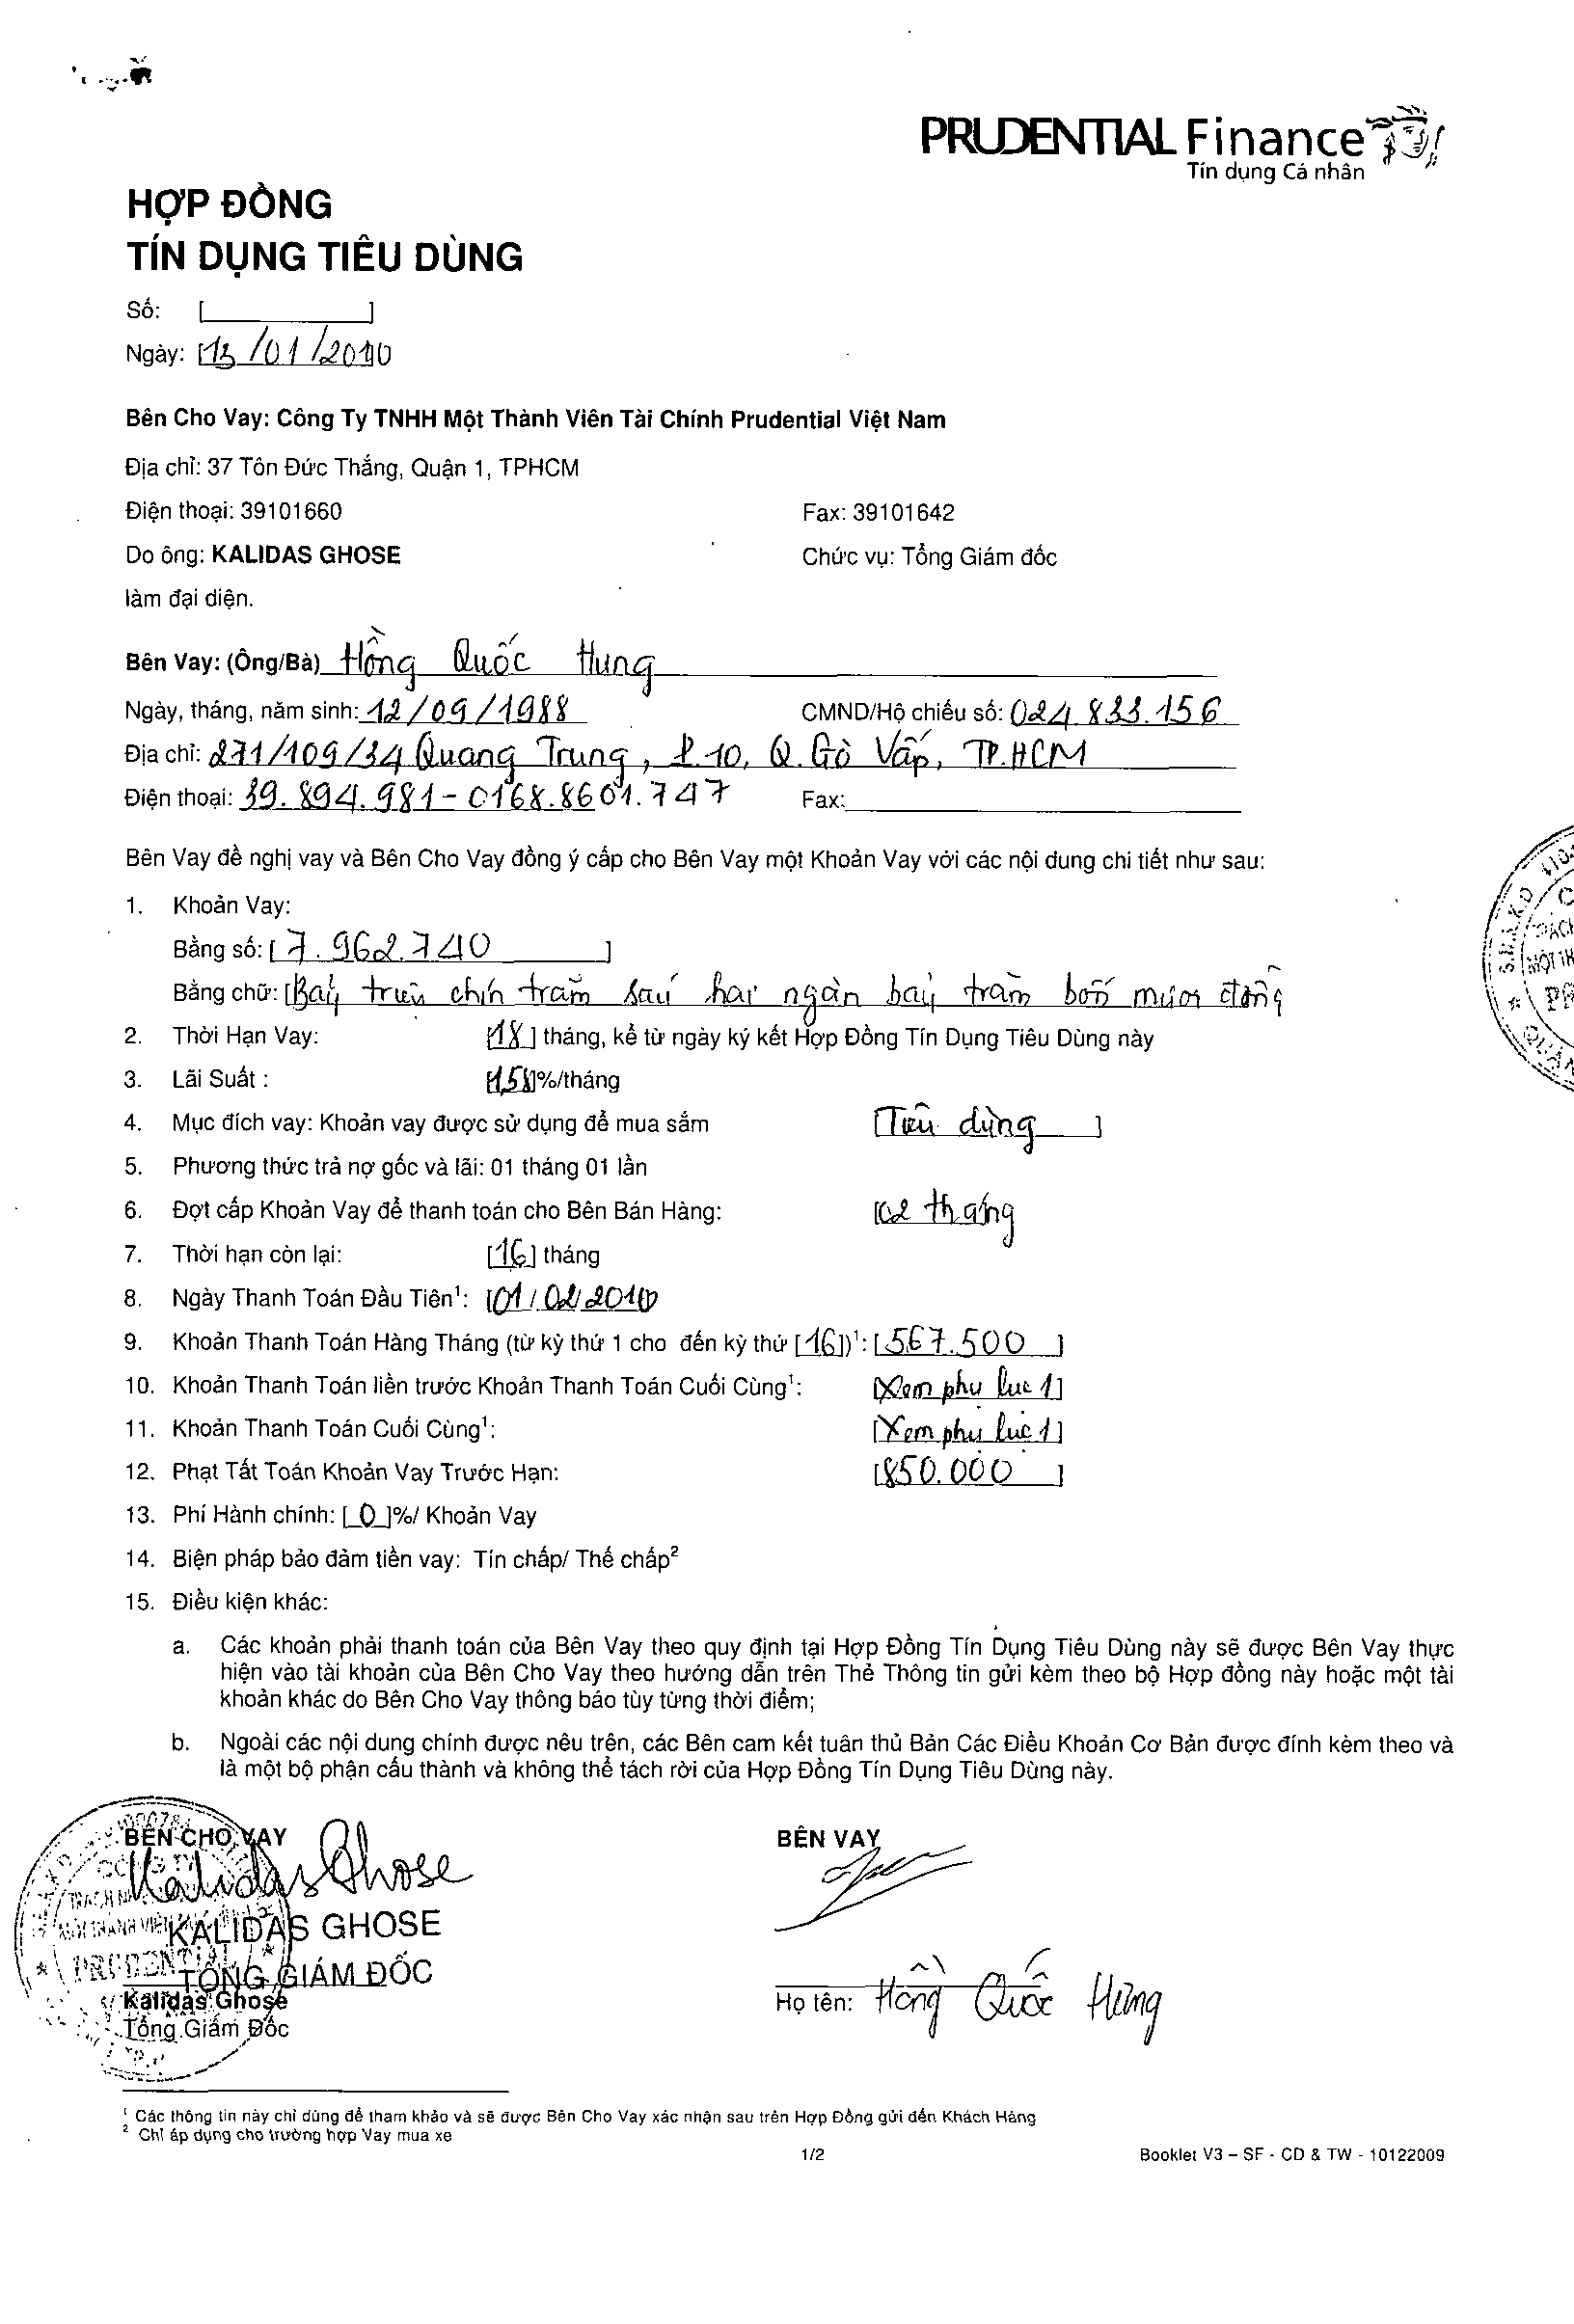 PRUDENTIAL Finance
Tín dụng Cá nhân
HỢP ĐỒNG
TÍN DỤNG TIÊU DÙNG
Số: [ ]
Ngày: [13/01/2010
Bên Cho Vay: Công Ty TNHH Một Thành Viên Tài Chính Prudential Việt Nam
Địa chỉ: 37 Tôn Đức Thắng, Quận 1, TPHCM
Điện thoại: 39101660 Fax: 39101642
Do ông: KALIDAS GHOSE Chức vụ: Tổng Giám đốc
làm đại diện.
Bên Vay: (Ông/Bà) Hồng Quốc Hưng
Ngày, tháng, năm sinh: 12/09/1988 CMND/Hộ chiếu số: 024.833.156
Địa chỉ: 271/109/34 Quang Trung, P.10, Q. Gò Vấp, TP.HCM
Điện thoại: 39.894.981 - 0168.8601.747 Fax:
Bên Vay đề nghị vay và Bên Cho Vay đồng ý cấp cho Bên Vay một Khoản Vay với các nội dung chi tiết như sau:
1. Khoản Vay:
Bằng số: [7.962.740 ]
Bằng chữ: [Bảy triệu chín trăm sáu hai ngàn bảy trăm bốn mươi đồng
2. Thời Hạn Vay: [18] tháng, kể từ ngày ký kết Hợp Đồng Tín Dụng Tiêu Dùng này
3. Lãi Suất : %/tháng
4. Mục đích vay: Khoản vay được sử dụng để mua sắm [Tiêu dùng ]
5. Phương thức trả nợ gốc và lãi: 01 tháng 01 lần
6. Đợt cấp Khoản Vay để thanh toán cho Bên Bán Hàng: [02 tháng
7. Thời hạn còn lại: [16] tháng
8. Ngày Thanh Toán Đầu Tiên¹: [01/02/2010
9. Khoản Thanh Toán Hàng Tháng (từ kỳ thứ 1 cho đến kỳ thứ [16])¹: [567.500 ]
10. Khoản Thanh Toán liền trước Khoản Thanh Toán Cuối Cùng¹: [Xem phụ lục 1]
11. Khoản Thanh Toán Cuối Cùng¹: [Xem phụ lục 1]
12. Phạt Tất Toán Khoản Vay Trước Hạn: [850.000 ]
13. Phí Hành chính: [ 0 ]%/ Khoản Vay
14. Biện pháp bảo đảm tiền vay: Tín chấp/ Thế chấp²
15. Điều kiện khác:
a. Các khoản phải thanh toán của Bên Vay theo quy định tại Hợp Đồng Tín Dụng Tiêu Dùng này sẽ được Bên Vay thực
hiện vào tài khoản của Bên Cho Vay theo hướng dẫn trên Thẻ Thông tin gửi kèm theo bộ Hợp đồng này hoặc một tài
khoản khác do Bên Cho Vay thông báo tùy từng thời điểm;
b. Ngoài các nội dung chính được nêu trên, các Bên cam kết tuân thủ Bản Các Điều Khoản Cơ Bản được đính kèm theo và
là một bộ phận cấu thành và không thể tách rời của Hợp Đồng Tín Dụng Tiêu Dùng này.
BÊN CHO VAY BÊN VAY
Kalidas Ghose
KALIDAS GHOSE
PRUDENTIAL
TỔNG GIÁM ĐỐC
Kalidas Ghose
Tổng Giám Đốc
Họ tên: Hồng Quốc Hưng
¹ Các thông tin này chỉ dùng để tham khảo và sẽ được Bên Cho Vay xác nhận sau trên Hợp Đồng gửi đến Khách Hàng
² Chỉ áp dụng cho trường hợp Vay mua xe
1/2 Booklet V3 – SF - CD & TW - 10122009